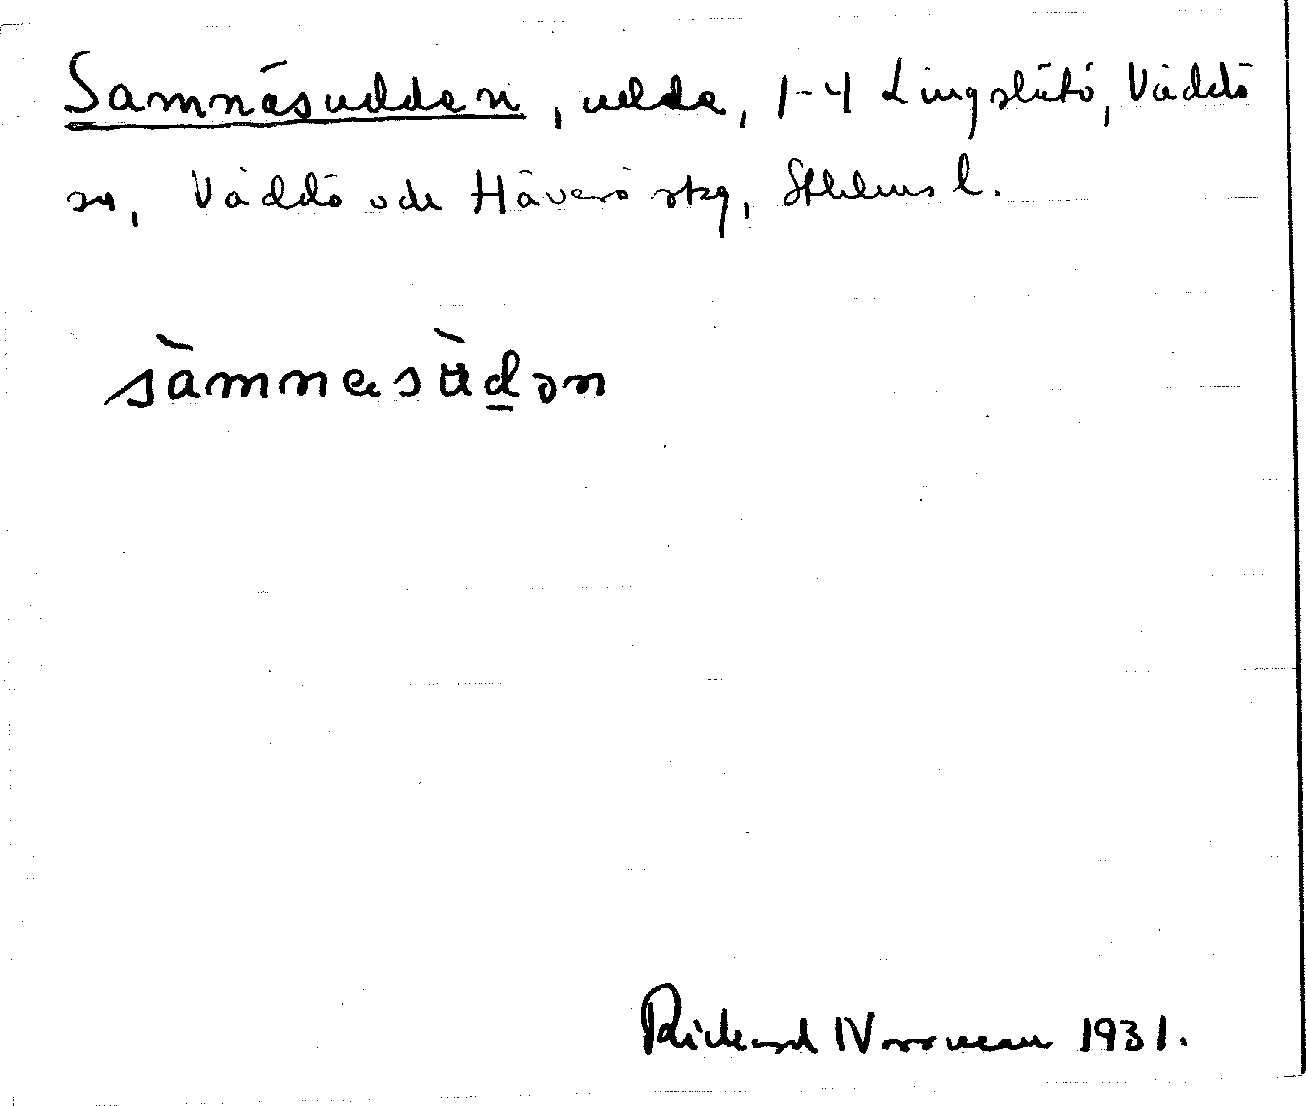 Samnäsudden, udde, 1-4 Lingslätö, Väddö
sn, Väddö och Häverö skg, Sthlms l.
sàmnesùdən
Rickard Norrman 1931.